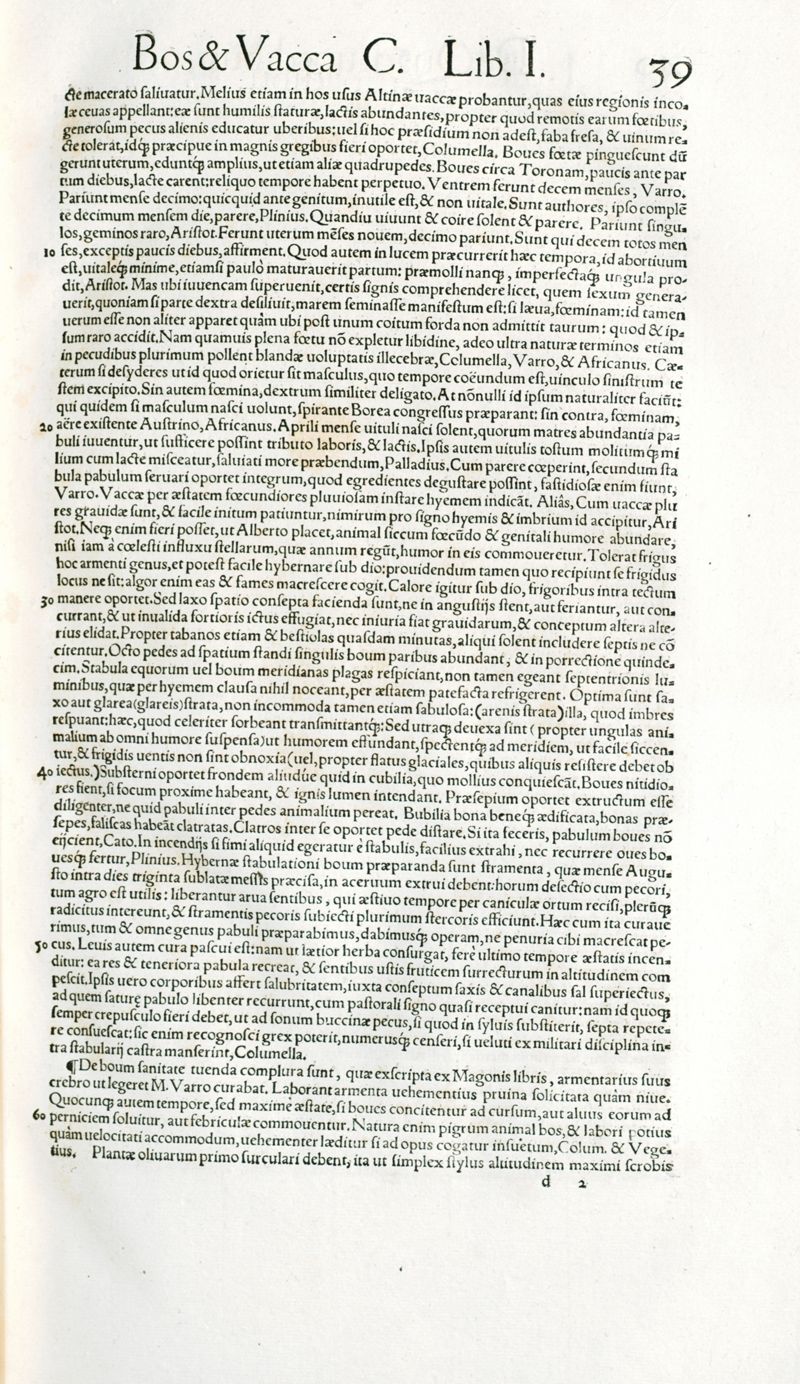 Bos & Vacca C. Lib. I. 39
cte macerato saliuatur. Melius etiam in hos usus Altinæ uaccæ probantur, quas eius regionis inco-
læ ceuas appellant: eæ sunt humilis staturæ, lactis abundantes, propter quod remotis earum fœtibus,
generosum pecus alienis educatur uberibus: uel si hoc præsidium non adest, faba fresa, & uinum re-
cte tolerat, idq́ præcipue in magnis gregibus fieri oportet, Columella. Boues fœtæ pinguescunt dũ
gerunt uterum, eduntq́ amplius, ut etiam aliæ quadrupedes. Boues circa Toronam, paucis ante par
tum diebus, lacte carent: reliquo tempore habent perpetuo. Ventrem ferunt decem menses, Varro.
Pariunt mense decimo: quicquid ante genitum, inutile est, & non uitale. Sunt authores, ipso complẽ
te decimum mensem die, parere, Plinius. Quandiu uiuunt & coire solent & parere. Pariunt singu-
los, geminos raro, Aristot. Ferunt uterum mẽses nouem, decimo pariunt. Sunt qui decem totos men
10 ses, exceptis paucis diebus, affirment. Quod autem in lucem præcurrerit hæc tempora, id abortiuum
est, uitaleq́ minime, etiamsi paulò maturauerit partum: præmolli nanq́, imperfectaq́ ungula pro-
dit, Aristot. Mas ubi iuuencam superuenit, certis signis comprehendere licet, quem sexum genera-
uerit, quoniam si parte dextra desiliuit, marem seminasse manifestum est: si læua, fœminam: id tamen
uerum esse non aliter apparet quàm ubi post unum coitum forda non admittit taurum: quod & ip-
sum raro accidit. Nam quamuis plena fœtu nõ expletur libidine, adeo ultra naturæ terminos etiam
in pecudibus plurimum pollent blandæ uoluptatis illecebræ, Columella, Varro, & Africanus. Cæ-
terum si desyderes ut id quod orietur sit masculus, quo tempore coëundum est, uinculo sinistrum te
stem excipito. Sin autem fœmina, dextrum similiter deligato. At nõnulli id ipsum naturaliter faciũt:
qui quidem si masculum nasci uolunt, spirante Borea congressus præparant: sin contra, fœminam,
20 aëre existente Austrino, Africanus. Aprili mense uituli nasci solent, quorum matres abundantia pa-
buli iuuentur, ut sufficere possint tributo laboris, & lactis. Ipsis autem uitulis tostum molitumq́ mi
lium cum lacte misceatur, saluiati more præbendum, Palladius. Cum parere cœperint, secundum sta
bula pabulum seruari oportet integrum, quod egredientes degustare possint, fastidiosæ enim fiunt,
Varro. Vaccæ per æstatem fœcundiores pluuiosam instare hyemem indicãt. Aliâs, Cum uaccæ plu
res grauidæ sunt, & facile initum patiuntur, nimirum pro signo hyemis & imbrium id accipitur, Ari
stot. Neq́ enim fieri posset, ut Alberto placet, animal siccum fœcũdo & genitali humore abundare,
nisi iam à cœlesti influxu stellarum, quæ annum regũt, humor in eis commoueretur. Tolerat frigus
hoc armenti genus, et potest facile hybernare sub dio: prouidendum tamen quo recipiunt se frigidus
locus ne sit: algor enim eas & fames macrescere cogit. Calore igitur sub dio, frigoribus intra tectum
30 manere oportet. Sed laxo spatio consepta facienda sunt, ne in angustijs stent, aut feriantur, aut con-
currant, & ut inualida fortioris ictus effugiat, nec iniuria fiat grauidarum, & conceptum altera alte-
rius elidat. Propter tabanos etiam & bestiolas quasdam minutas, aliqui solent includere septis ne cõ
citentur. Octo pedes ad spatium standi singulis boum paribus abundant, & in porrectione quinde-
cim. Stabula equorum uel boum meridianas plagas respiciant, non tamen egeant septentrionis lu-
minibus, quæ per hyemem clausa nihil noceant, per æstatem patefacta refrigerent. Optima sunt sa-
xo aut glarea (glareis) strata, non incommoda tamen etiam sabulosa: (arenis strata) illa, quod imbres
respuant: hæc, quod celeriter sorbeant transmittantq́: Sed utraq́ deuexa sint (propter ungulas ani-
malium ab omni humore suspensa) ut humorem effundant, spectentq́ ad meridiem, ut facile siccen-
tur, & frigidis uentis non sint obnoxia (uel, propter flatus glaciales, quibus aliquis resistere debet ob
40 iectus.) Substerni oportet frondem aliudue quid in cubilia, quo mollius conquiescãt. Boues nitidio-
res fient, si focum proxime habeant, & ignis lumen intendant. Præsepium oportet extructum esse
diligenter, ne quid pabuli inter pedes animalium pereat. Bubilia bona beneq́ ædificata, bonas præ-
sepes, faliscas habeãt clatratas. Clatros inter se oportet pede distare. Si ita feceris, pabulum boues nõ
eijcient, Cato. In incendijs si fimi aliquid egeratur è stabulis, facilius extrahi, nec recurrere oues bo-
uesq́ fertur, Plinius. Hybernæ stabulationi boum præparanda sunt stramenta, quæ mense Augu-
sto intra dies triginta sublatæ messis præcisa, in aceruum extrui debent: horum desectio cum pecori,
tum agro est utilis: liberantur arua sentibus, qui æstiuo tempore per caniculæ ortum recisi, plerũq́
radicitus intereunt, & stramentis pecoris subiecti plurimum stercoris efficiunt. Hæc cum ita curaue
rimus, tum & omne genus pabuli præparabimus, dabimusq́ operam, ne penuria cibi macrescat pe-
50 cus. Leuis autem cura pascui est: nam ut lætior herba consurgat, ferè ultimo tempore æstatis incen-
ditur: ea res & teneriora pabula recreat, & sentibus ustis fruticem surrecturum in altitudinem com
pescit. Ipsis uero corporibus affert salubritatem, iuxta conseptum saxis & canalibus sal superiectus,
ad quem saturæ pabulo libenter recurrunt, cum pastorali signo quasi receptui canitur: nam id quoq́
semper crepusculo fieri debet, ut ad sonum buccinæ pecus, si quod in syluis substiterit, septa repete-
re consuescat: sic enim recognosci grex poterit, numerusq́ censeri, si ueluti ex militari disciplina in-
tra stabularij castra manserint, Columella.
¶ De boum sanitate tuenda complura sunt, quæ exscripta ex Magonis libris, armentarius suus
crebro ut legeret M. Varro curabat. Laborant armenta uehementius pruina solicitata quàm niue.
Quocunq́ autem tempore, sed maxime æstate, si boues concitentur ad cursum, aut aluus eorum ad
60 perniciem soluitur, aut febriculæ commouentur. Natura enim pigrum animal bos, & labori potius
quàm uelocitati accommodum, uehementer læditur si ad opus cogatur insuetum, Colum. & Vege-
tius. Plantæ oliuarum primo surculari debent, ita ut simplex stylus altitudinem maximi scrobis
d 2